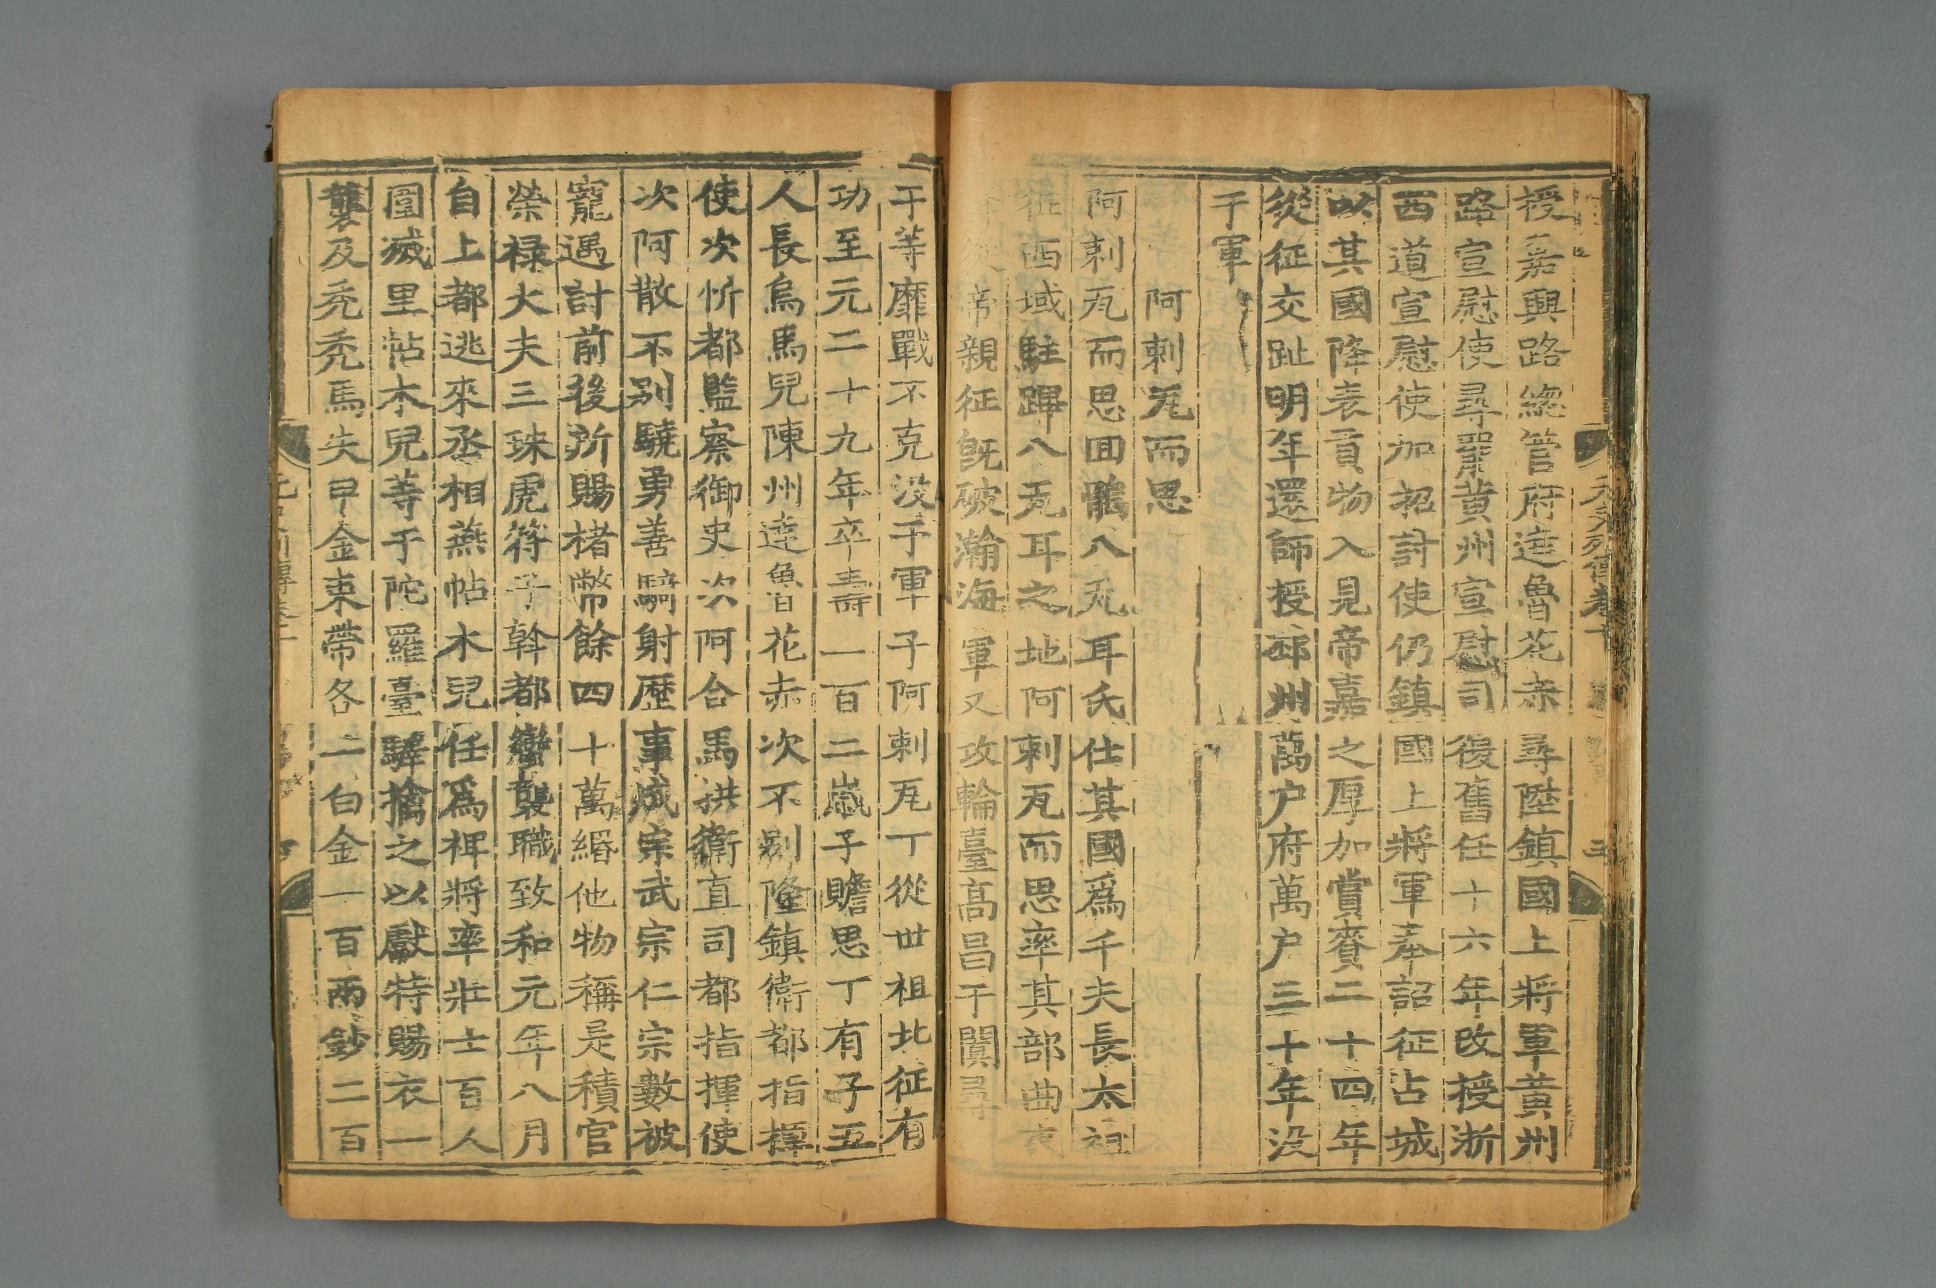 授嘉興路總管府達魯花赤尋陞鎮國上將軍黃州
路宣慰使尋罷黃州宣慰司復舊任十六年改授浙
西道宣慰使加招討使仍鎮國上將軍奉詔征占城
以其國降表貢物入見帝嘉之厚加賞賚二十四年
從征交趾明年還師授邳州萬戶府萬戶三十年沒
于軍
阿剌瓦而思
阿剌瓦而思回鶻八瓦耳氏仕其國爲千夫長太祖
征西域駐蹕八瓦耳之地阿剌瓦而思率其部曲來
從帝親征旣破瀚海軍又攻輪臺高昌于闐尋
于等靡戰不克沒于軍子阿剌瓦丁從世祖北征有
功至元二十九年卒壽一百二歲子贍思丁有子五
人長烏馬兒陳州達魯花赤次不別隆鎮衛都指揮
使次忻都監察御史次阿合馬拱衛直司都指揮使
次阿散不別驍勇善騎射歷事成宗武宗仁宗數被
寵遇計前後所賜楮幣餘四十萬緡他物稱是積官
榮祿大夫三珠虎符子斡都蠻襲職致和元年八月
自上都逃來丞相燕帖木兒任爲裨將率壯士百人
圍滅里帖木兒等于陀羅臺驛擒之以獻特賜衣一
襲及禿禿馬失甲金束帶各一白金一百兩鈔二百